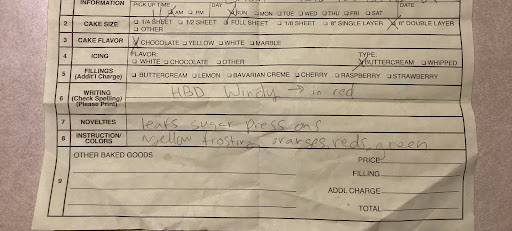 INFORMATION PICK UP TIME DAY DATE
AM □ PM SUN □ MON □ TUE □ WED □ THU □ FRI □ SAT
2 CAKE SIZE □ 1/4 SHEET □ 1/2 SHEET □ FULL SHEET □ 1/8 SHEET □ 8" SINGLE LAYER 8" DOUBLE LAYER
□ OTHER
3 CAKE FLAVOR CHOCOLATE □ YELLOW □ WHITE □ MARBLE
4 ICING FLAVOR: TYPE:
□ WHITE □ CHOCOLATE □ OTHER BUTTERCREAM □ WHIPPED
5 FILLINGS (Addt'l Charge) □ BUTTERCREAM □ LEMON □ BAVARIAN CREME □ CHERRY □ RASPBERRY □ STRAWBERRY
6 WRITING (Check Spelling) (Please Print) HBD Windy → in red
7 NOVELTIES leafs sugar pressions
8 INSTRUCTION/ COLORS yellow frosting oranges, reds, green
9 OTHER BAKED GOODS
PRICE
FILLING
ADDL CHARGE
TOTAL